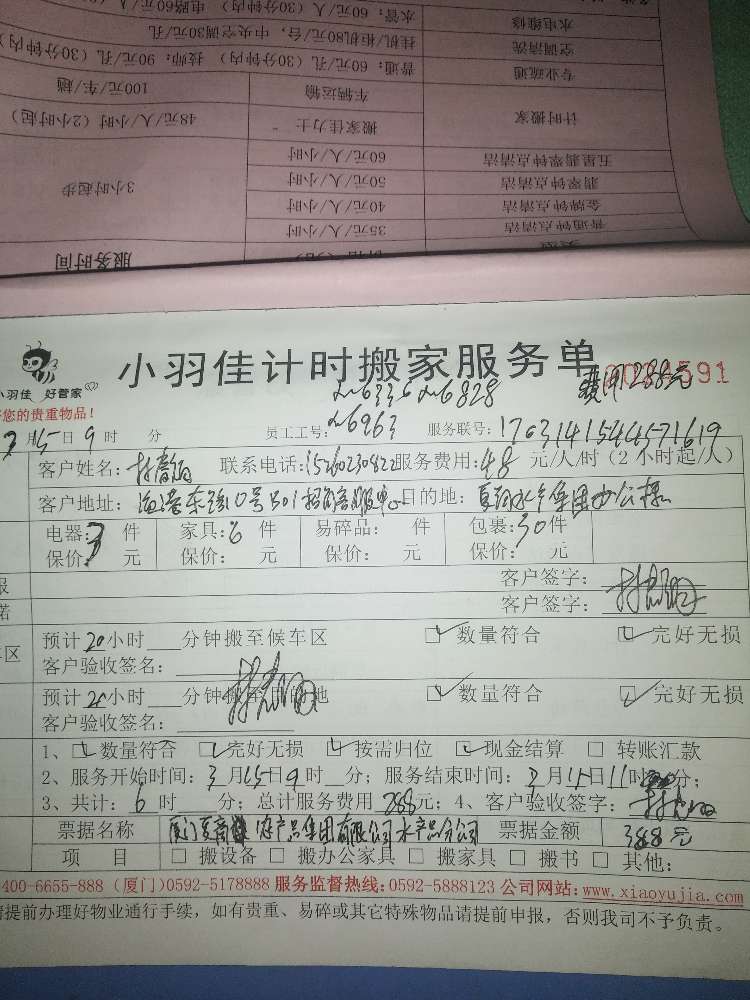 水管：60元/人（30分钟内）电路60元/人
水电维修
挂机/柜机80元/台，中央空调30元/孔
空调清洗
普通：60元/孔（30分钟内）技师：90元/孔（30分钟内）
专业疏通
100元/车/趟
车辆运输
48元/人/小时（2小时起）
搬家佳力士
计时搬家
60元/人/小时
五星翡翠钟点清洁
50元/人/小时
翡翠钟点清洁
3小时起步
40元/人/小时
金牌钟点清洁
35元/人/小时
普通钟点清洁
服务时间
小羽佳计时搬家服务单
小羽佳 好管家
费用288元
您的贵重物品！
3月15日9时 分 员工工号： 6335 6828 6963 服务联号：1703141544571619
客户姓名： 联系电话：15260230822 服务费用：48元/人/时（2小时起/人）
客户地址： 目的地：
电器：3件 家具：6件 易碎品： 件 包裹：30件
保价： 元 保价： 元 保价： 元 保价： 元
客户签字：
客户签字：
预计20小时 分钟搬至候车区 数量符合 完好无损
客户验收签名：
预计20小时 分钟搬至目的地 数量符合 完好无损
客户验收签名：
1、数量符合 完好无损 按需归位 现金结算 转账汇款
2、服务开始时间：3月15日9时 分；服务结束时间：3月15日11时 分；
3、共计：6时 分；总计服务费用288元；4、客户验收签字：
票据名称 厦门夏商 产品集团有限公司水产品分公司 票据金额 388元
项 目 搬设备 搬办公家具 搬家具 搬书 其他：
400-6655-888（厦门）0592-5178888 服务监督热线：0592-5888123 公司网站：www.xiaoyujia.com
请提前办理好物业通行手续，如有贵重、易碎或其它特殊物品请提前申报，否则我司不予负责。